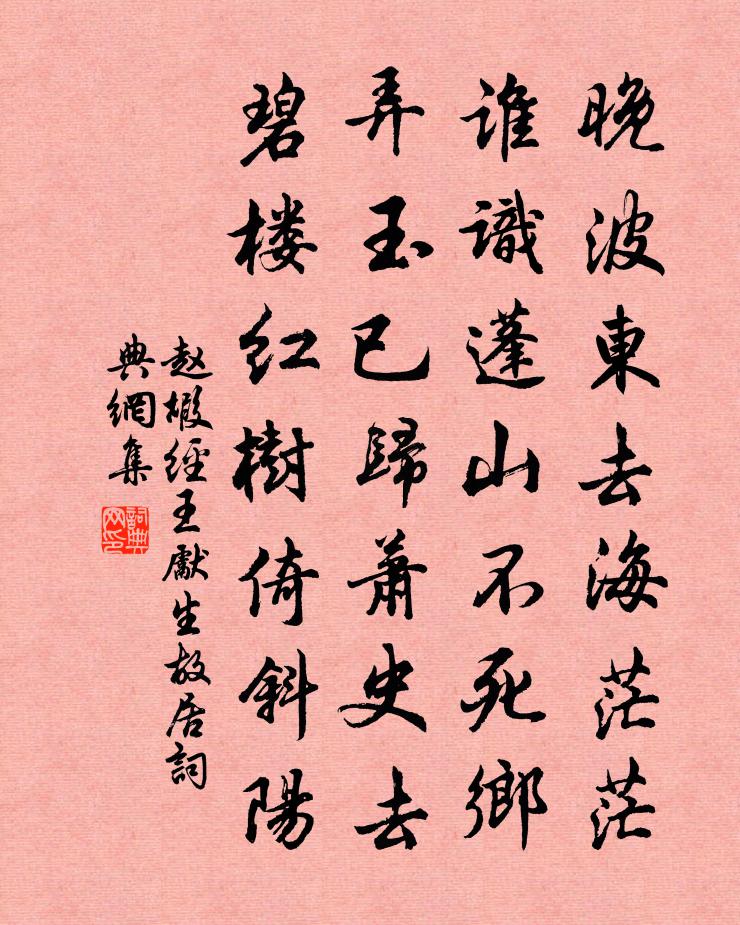 晚波東去海茫茫
谁識蓬山不死鄉
弄玉已歸蕭史去
碧楼红樹倚斜陽
赵嘏經王獻生故居詞
典網集
詞典网印